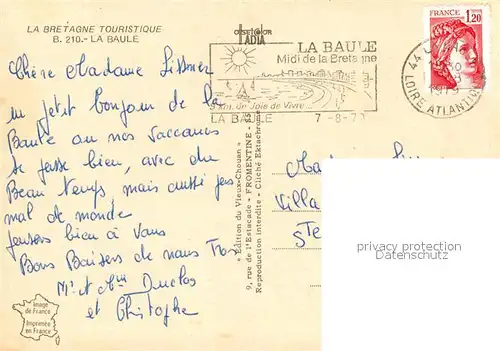 LA BRETAGNE TOURISTIQUE
B. 210.- LA BAULE
Chère Madame
un petit bonjour de la
Baule ou nos vaccances
se passe bien, avec du
Beau temps mais aussi pas
mal de monde
pensons bien à vous
Bons Baisers de nous Trois
Mr et Mme Duclos
et Christophe
Image
de France
Imprimée
en France
ADIA
LA BAULE
Midi de la Bretagne
9 km. de Joie de Vivre
LA BAULE
7-8-79
FRANCE
1,20
44
LOIRE ATLANTIQUE
« Edition du Vieux-Chouan » FROMENTINE - 85
9, rue de l'Estacade -
Reproduction interdite - Cliché Ektachrome
Villa
Ste
privacy protection
Datenschutz